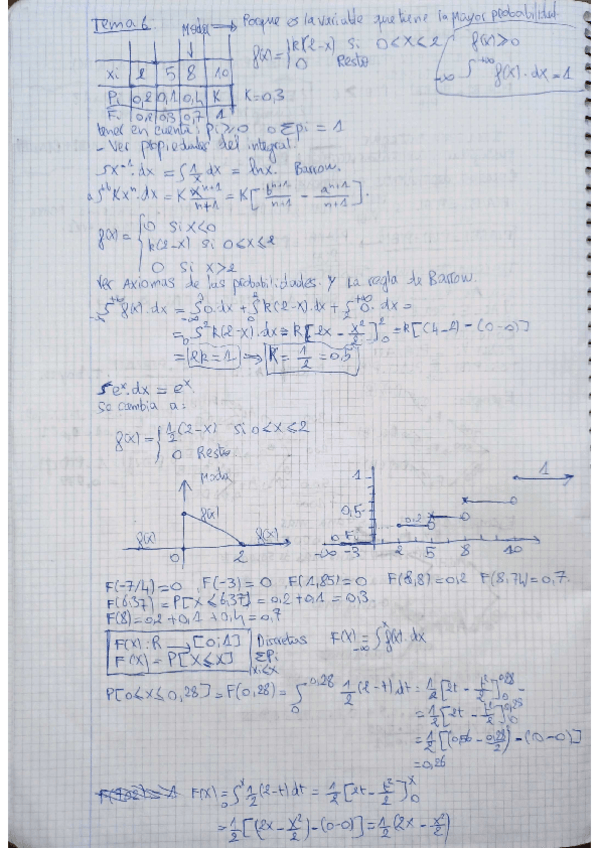 Tema 6 Moda → Porque es la variable que tiene la mayor probabilidad.
f(x) = { k(2-x) si 0<x≤2
0 Resto
f(x) ≥ 0
∫_{-∞}^{+∞} f(x)·dx = 1
xi | 2 | 5 | 8 | 10
Pi | 0,2 | 0,1 | 0,4 | K K=0,3
Fi | 0,2 | 0,3 | 0,7 | 1
tener en cuenta: Pi ≥ 0 o ΣPi = 1
- Ver propiedades del integral.
∫x⁻¹·dx = ∫1/x dx = lnx. Barrow.
∫_a^b Kxⁿ·dx = K x^{n+1}/(n+1) = K[b^{n+1}/(n+1) - a^{n+1}/(n+1)].
f(x) = { 0 si x<0
k(2-x) si 0<x≤2
0 si x>2
Ver Axiomas de las probabilidades. Y La regla de Barrow.
∫_{-∞}^{+∞} f(x)·dx = ∫_{-∞}^0 0·dx + ∫_0^2 k(2-x)·dx + ∫_2^{+∞} 0·dx =
= ∫_0^2 k(2-x)·dx = k[2x - x²/2]_0^2 = k[(4-2) - (0-0)]
= 2k=1 → K = 1/2 = 0,5
∫eˣ·dx = eˣ
Se cambia a:
f(x) = { 1/2(2-x) si 0<x≤2
0 Resto
Moda
f(x) f(x) f(x)
0 2
1 1
0,5 0,2
-∞ -3 2 5 8 10
F(-7/4)=0 F(-3)=0 F(1,85)=0 F(8,8)=0,2 F(8,74)=0,7.
F(6,37) = P[X≤6,37] = 0,2+0,1 = 0,3
F(8)=0,2+0,1+0,4=0,7
F(X): R → [0;1] Discretas F(x) = ∫_{-∞}^x f(t)·dx
F(X) = P[X≤x] ΣPi
xi≤x
P[0≤x≤0,28] = F(0,28) = ∫_0^{0,28} 1/2(2-t)dt = 1/2[2t - t²/2]_0^{0,28} -
= 1/2[2t - t²/2]_0^{0,28}
= 1/2[(0,56 - 0,28²/2) - (0-0)]
= 0,26
F(X) = ∫_0^x 1/2(2-t)dt = 1/2[2t - t²/2]_0^x
= 1/2[(2x - x²/2) - (0-0)] = 1/2(2x - x²/2)